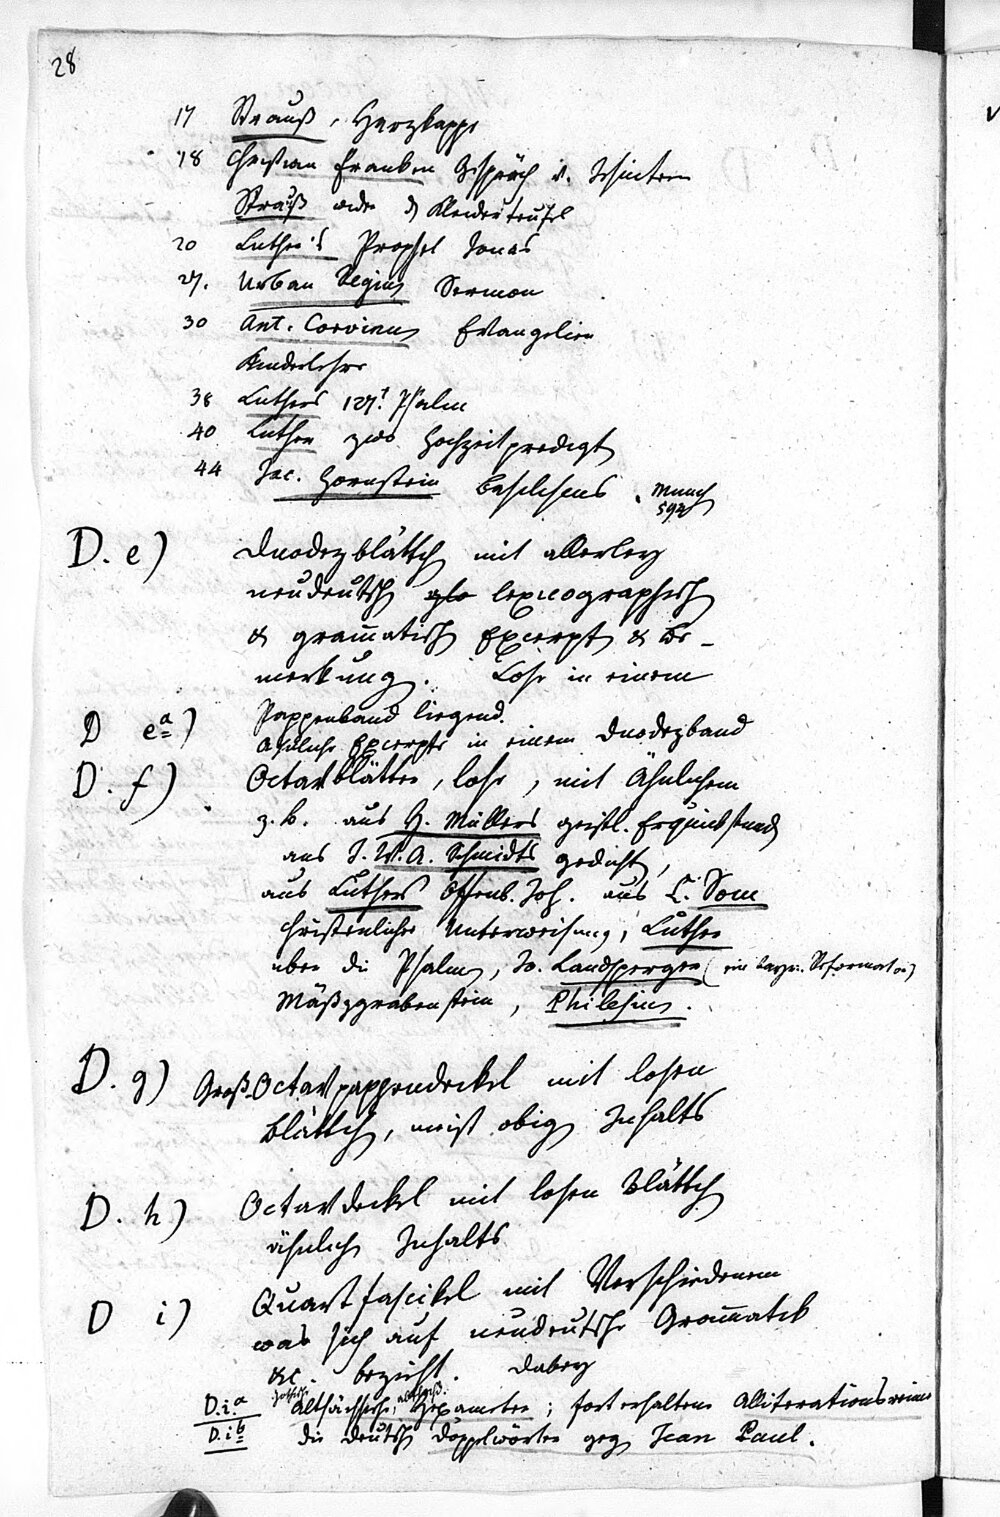 28
17 Strauß, Herzkappe
18 Christian Franken Gespräch v. Wintern
Strauß wider d Kleiderteufel
20 Luther's Prophet Jonas
27. Urban Regius Sermon
30 Ant. Corvinus Evangelien
Kinderlehre
38 Luthers 127t. Psalm
40 Luther zwo Hochzeitpredigt
44 Jac. Hornstein
D. e) Duodezblättch mit allerley
neudeutsch lexicographisch
& grammatisch Excerpt & Be-
merkung. Lose in einem
Pappenband liegend.
D ea) Ähnliche Excerpte in einem Duodezband
D. f) Octavblätter, lose, mit Ähnlichem
z. b. aus H. Müllers geistl. Erquickstund
aus J. W. A. Schmidts gedicht,
aus Luthers Offenb. Joh. aus C. Som
christenlicher Unterweisung, Luther
über die Psalm, Jo. Landsperger (ein bayr. Reformator)
Philesius.
D. g) Groß Octavpappendeckel mit losen
Blättch, meist obig Inhalts
D. h) Octavdeckel mit losen Blättch
ähnlich Inhalts
D i) Quartfascikel mit Verschiedenem
was sich auf neudeutsche Grammatik
&c. bezieht. Dabey
D.i.a Altsächsische, Hexameter; fort erhaltene Alliterationsreime
D.ib die deutsch Doppelwörter geg Jean Paul.